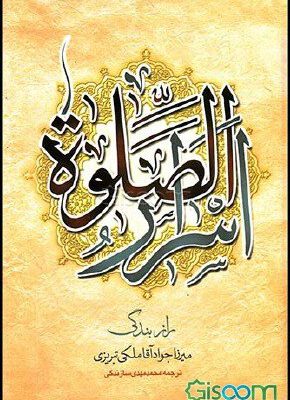 اسرار الصَّلوة
راز بندگی
میرزا جواد آقا ملکی تبریزی
ترجمه محمدمهدی سازندگی
Gisoom